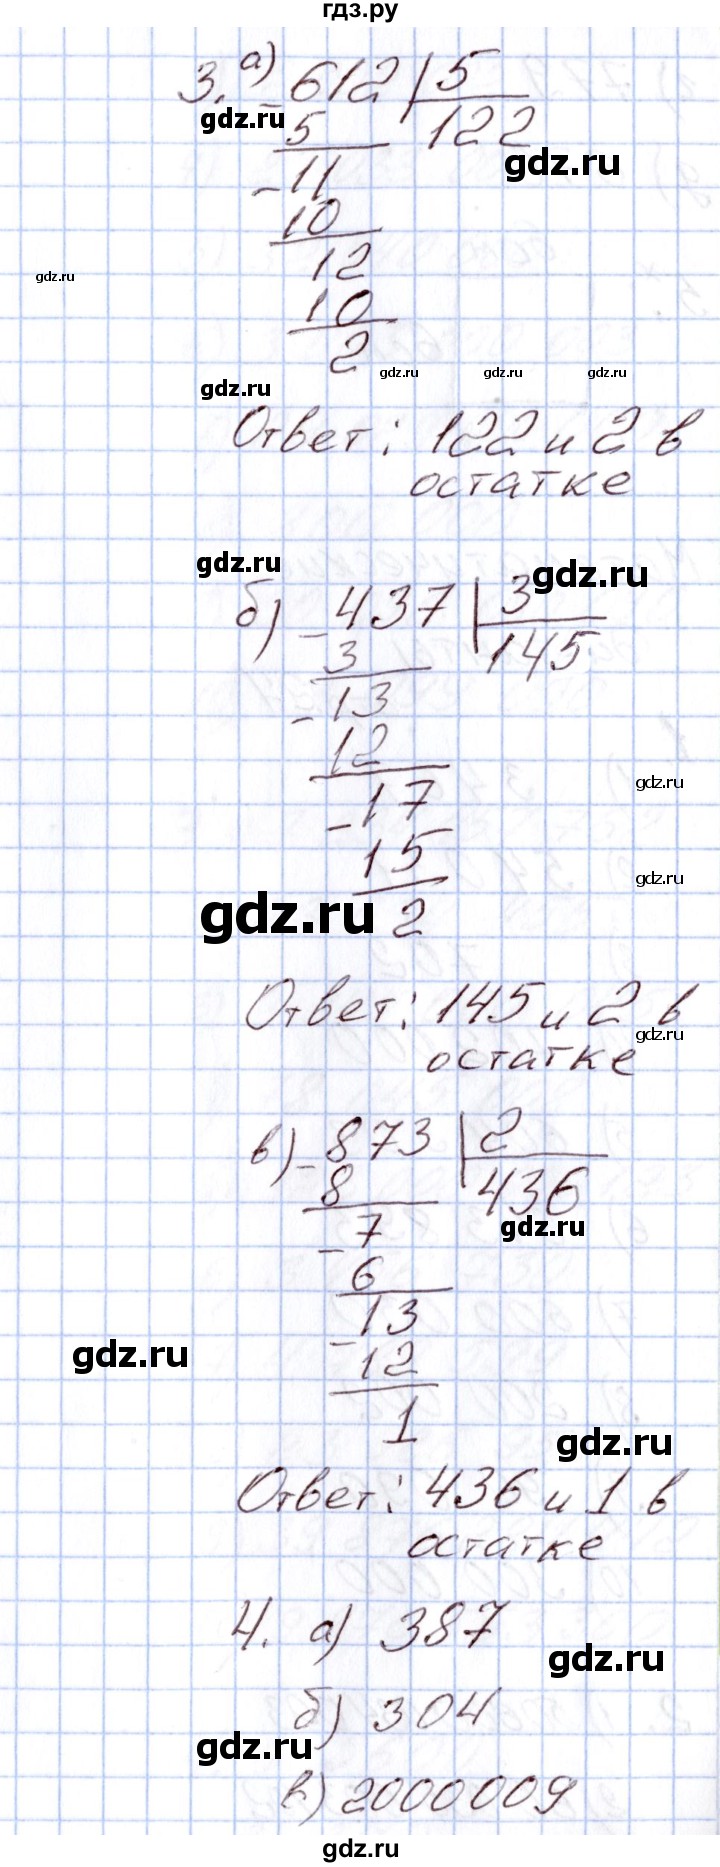 гдз.ру
3. а) 612 | 5
gdz.ru
- 5 122
gdz.ru
- 11
10
gdz.ru
12
10
2
gdz.ru gdz.ru gdz.ru
gdz.ru
Ответ: 122 и 2 в
остатке
gdz.ru
gdz.ru
б) - 437 | 3
3 145
- 13
12
gdz.ru
- 17
15
gdz.ru
gdz.ru
2
Ответ: 145 и 2 в
gdz.ru
остатке
в) - 873 | 2
8 436
gdz.ru
- 7
6
13
gdz.ru
- 12
1
gdz.ru
Ответ: 436 и 1 в
остатке
4. а) 387
gdz.ru
б) 304
gdz.ru
в) 2000009
gdz.ru